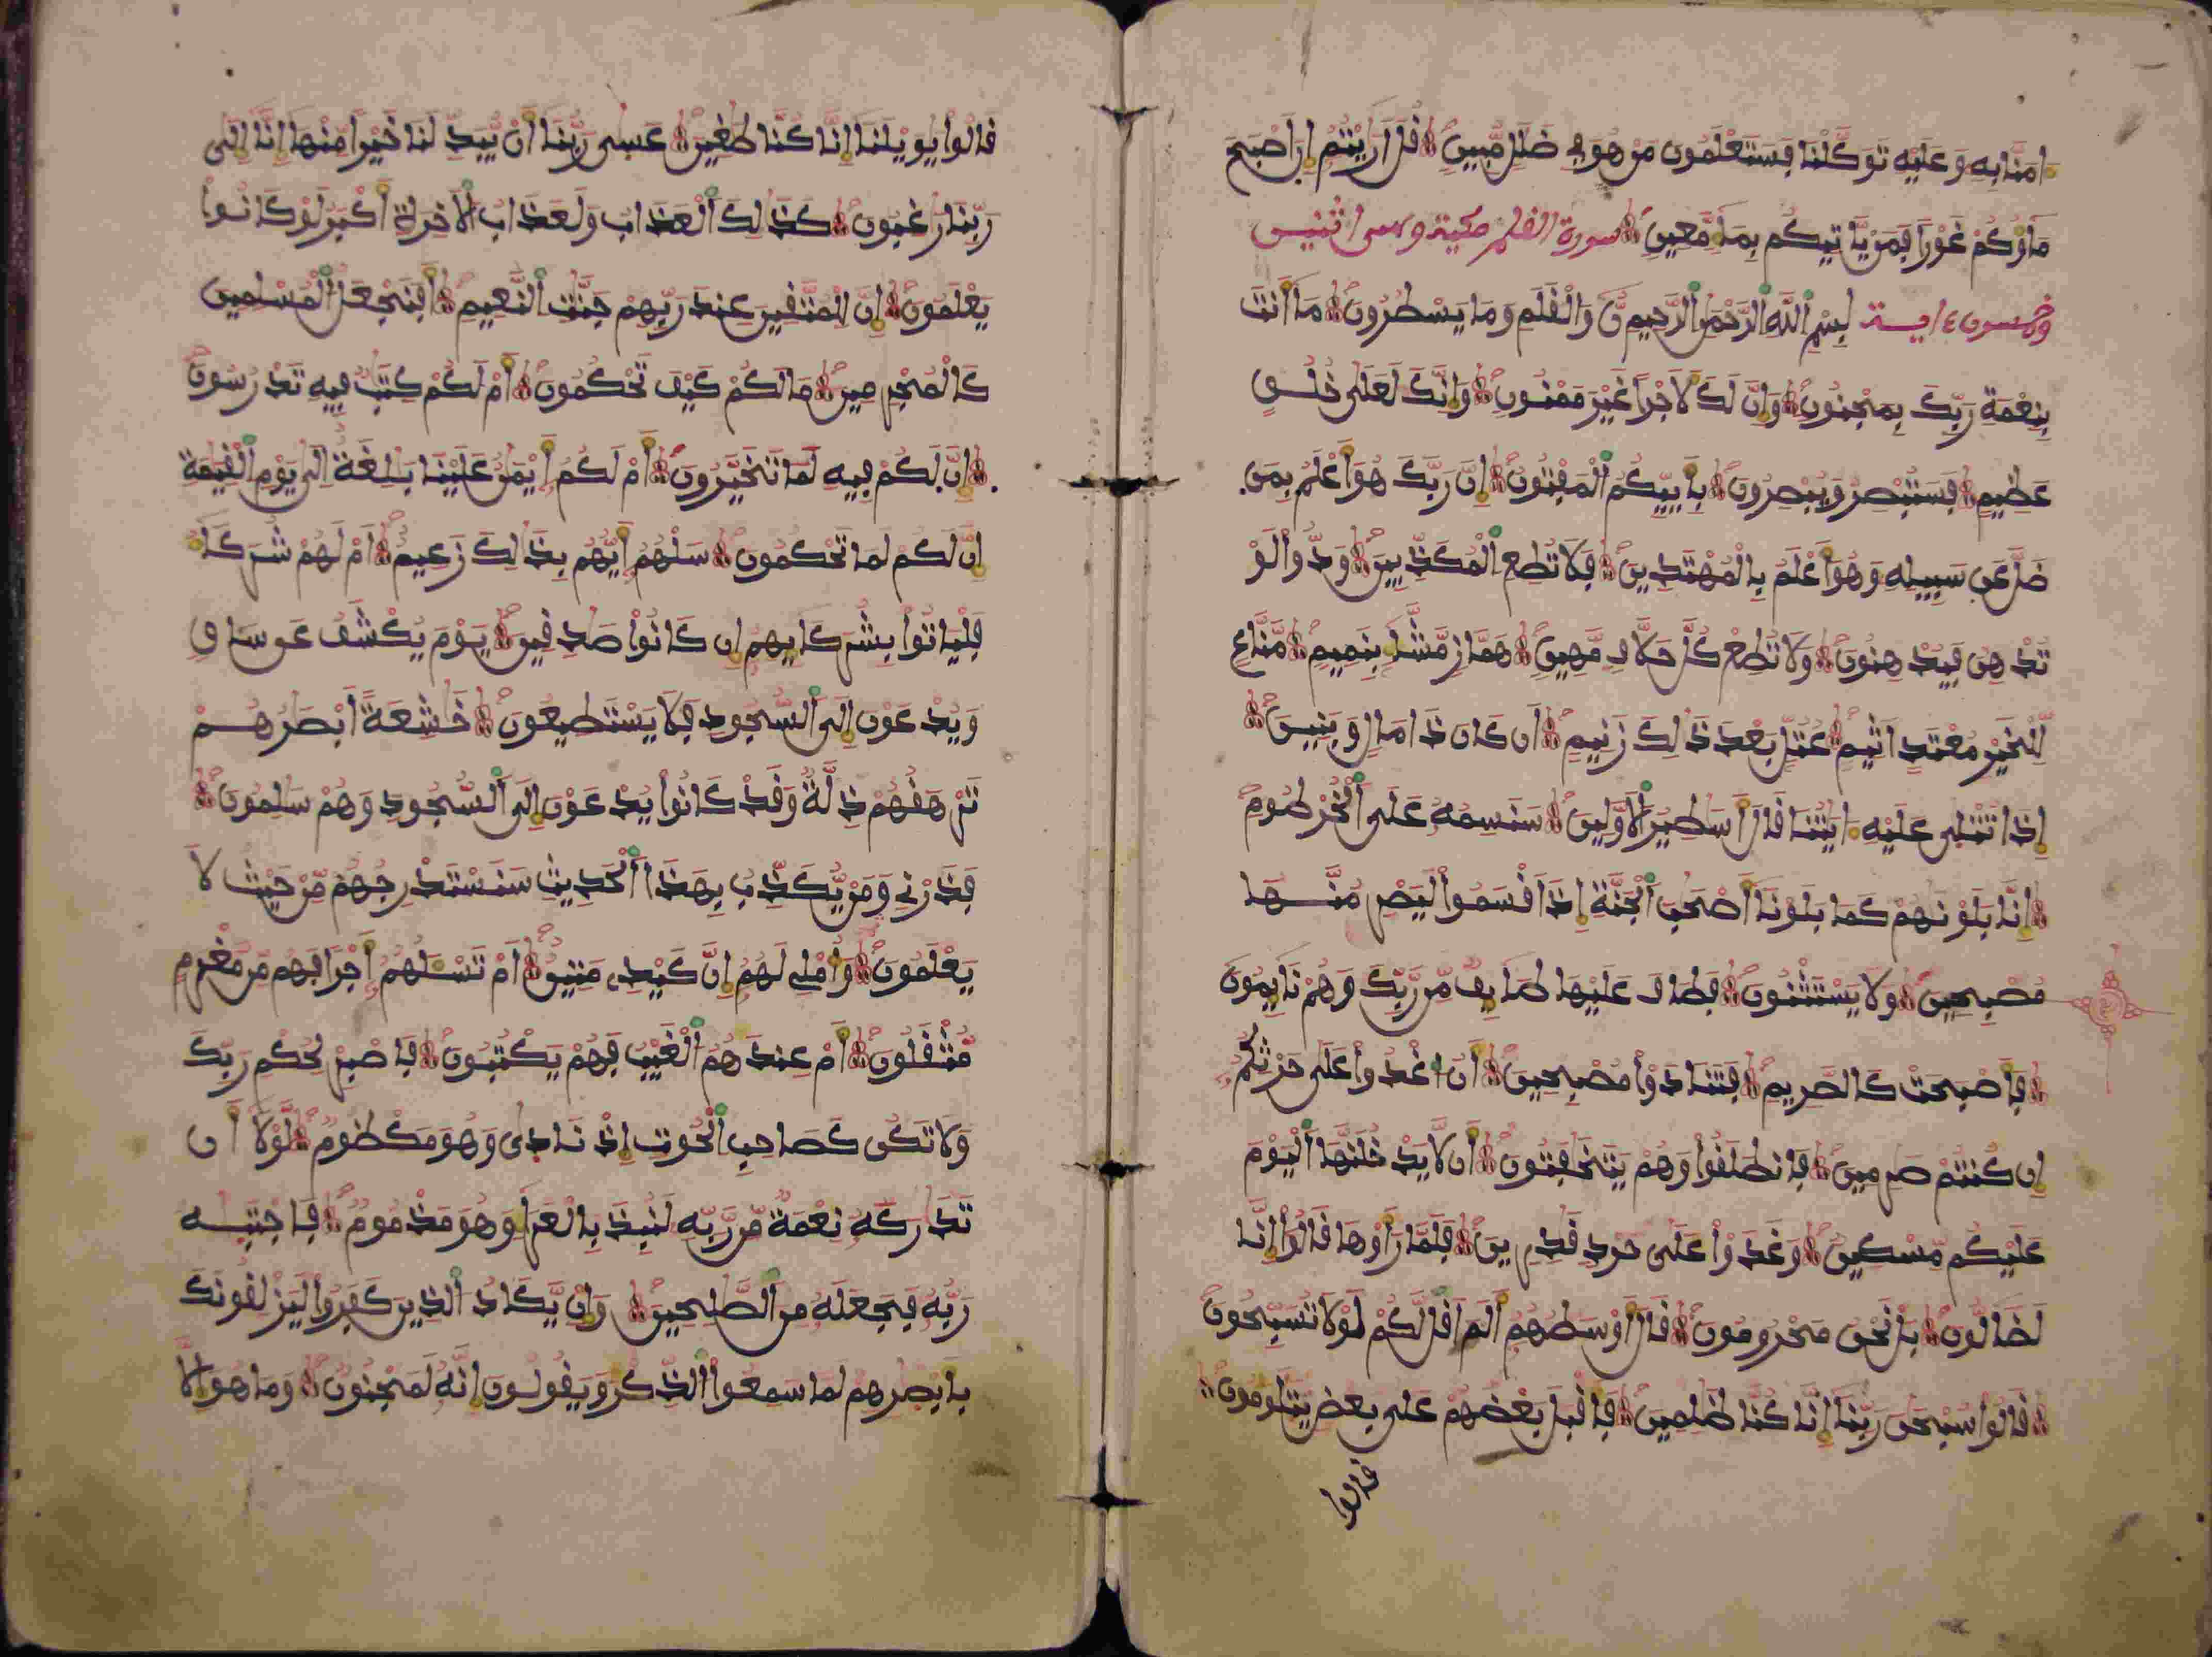 ءامنا به وعليه توكلنا فستعلمون من هو في ضلل مبين قل اريتم ان اصبح
ماؤكم غورا فمن ياتيكم بماء معين سورة القلم مكية وهى اثنين
وخمسون ءاية بسم الله الرحمن الرحيم ن والقلم وما يسطرون ما انت
بنعمة ربك بمجنون وان لك لاجرا غير ممنون وانك لعلى خلق
عظيم فستبصر ويبصرون باييكم المفتون ان ربك هو اعلم بمن
ضل عن سبيله وهو اعلم بالمهتدين فلا تطع المكذبين ودوا لو
تدهن فيدهنون ولا تطع كل حلاف مهين هماز مشاء بنميم مناع
للخير معتد اثيم عتل بعد ذلك زنيم ان كان ذا مال وبنين
اذا تتلى عليه ءايتنا قال اسطير الاولين سنسمه على الخرطوم
انا بلونهم كما بلونا اصحب الجنة اذ اقسموا ليصرمنها
مصبحين ولا يستثنون فطاف عليها طايف من ربك وهم نايمون
فاصبحت كالصريم فتنادوا مصبحين ان اغدوا على حرثكم
ان كنتم صرمين فانطلقوا وهم يتخفتون ان لا يدخلنها اليوم
عليكم مسكين وغدوا على حرد قدرين فلما راوها قالوا انا
لضالون بل نحن محرومون قال اوسطهم الم اقل لكم لولا تسبحون
قالوا سبحن ربنا انا كنا ظلمين فاقبل بعضهم على بعض يتلومون
قالوا
قالوا يويلنا انا كنا طغين عسى ربنا ان يبدلنا خيرا منها انا الى
ربنا رغبون كذلك العذاب ولعذاب الاخرة اكبر لو كانوا
يعلمون ان للمتقين عند ربهم جنت النعيم افنجعل المسلمين
كالمجرمين ما لكم كيف تحكمون ام لكم كتب فيه تدرسون
ان لكم فيه لما تخيرون ام لكم ايمن علينا بلغة الى يوم القيمة
ان لكم لما تحكمون سلهم ايهم بذلك زعيم ام لهم شركاء
فلياتوا بشركايهم ان كانوا صدقين يوم يكشف عن ساق
ويدعون الى السجود فلا يستطيعون خشعة ابصرهم
ترهقهم ذلة وقد كانوا يدعون الى السجود وهم سلمون
فذرني ومن يكذب بهذا الحديث سنستدرجهم من حيث لا
يعلمون واملي لهم ان كيدي متين ام تسلهم اجرا فهم من مغرم
مثقلون ام عندهم الغيب فهم يكتبون فاصبر لحكم ربك
ولا تكن كصاحب الحوت اذ نادى وهو مكظوم لولا ان
تدركه نعمة من ربه لنبذ بالعراء وهو مذموم فاجتبه
ربه فجعله من الصلحين وان يكاد الذين كفروا ليزلقونك
بابصرهم لما سمعوا الذكر ويقولون انه لمجنون وما هو الا